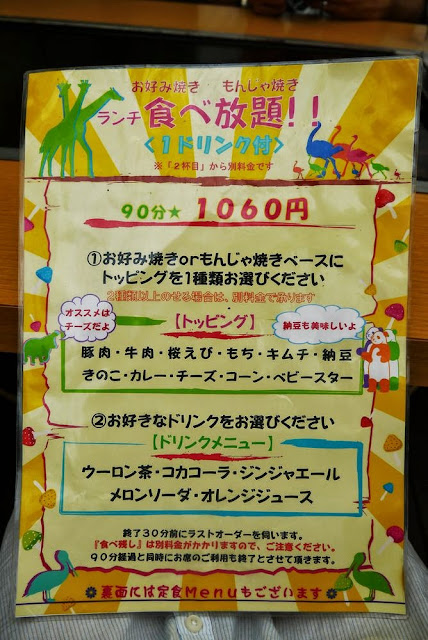 お好み焼き もんじゃ焼き
ランチ 食べ放題!!
〈1ドリンク付〉
※「2杯目」から別料金です
90分★ 1060円
①お好み焼きorもんじゃ焼きベースに
トッピングを1種類お選びください
2種類以上のせる場合は、別料金で承ります
オススメは
チーズだよ
【トッピング】
納豆も美味しいよ
豚肉・牛肉・桜えび・もち・キムチ・納豆
きのこ・カレー・チーズ・コーン・ベビースター
②お好きなドリンクをお選びください
【ドリンクメニュー】
ウーロン茶・コカコーラ・ジンジャエール
メロンソーダ・オレンジジュース
終了30分前にラストオーダーを伺います。
『食べ残し』は別料金がかかりますので、ご注意ください。
90分経過と同時にお席のご利用も終了とさせて頂きます。
裏面には定食Menuもございます